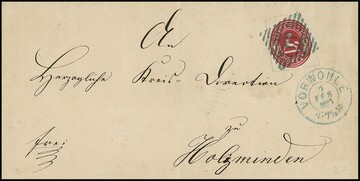 An
Herzogliche Kreis-Direction
zu
Holzminden
frei
VORWOHLE
7
FEB